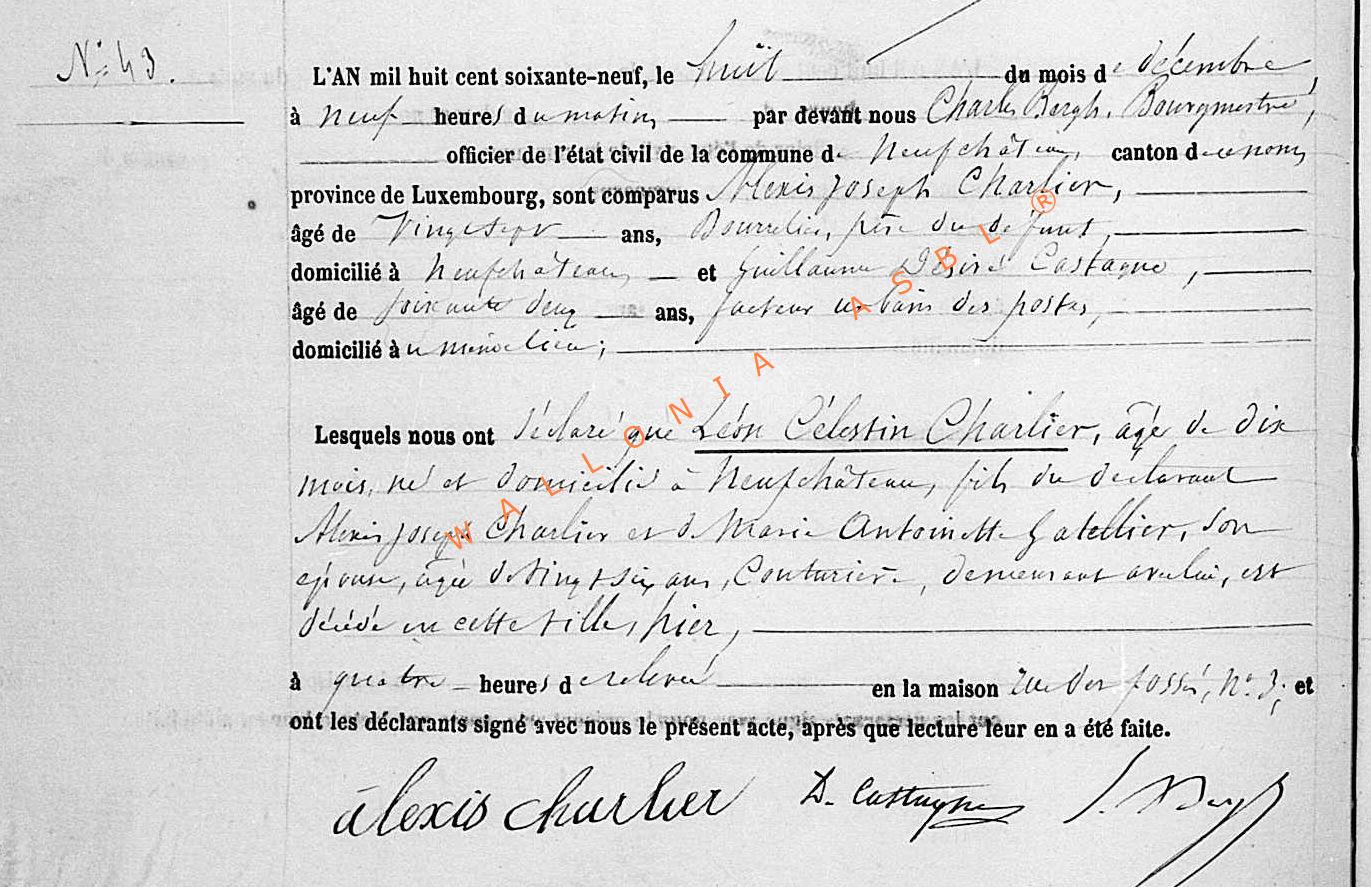 N° 43.
L'AN mil huit cent soixante-neuf, le huit du mois de décembre,
à neuf heures du matin, par devant nous Charles Bergh, Bourgmestre,
officier de l'état civil de la commune de Neufchâteau, canton de ce nom,
province de Luxembourg, sont comparus Alexis Joseph Charlier,
âgé de Vingt sept ans, Bourrelier, père du défunt,
domicilié à Neufchâteau, et Guillaume Désiré Castagne,
âgé de soixante deux ans, facteur urbain des postes,
domicilié au même lieu;
Lesquels nous ont déclaré que Léon Célestin Charlier, âgé de dix
mois, né et domicilié à Neufchâteau, fils du déclarant
Alexis Joseph Charlier et de Marie Antoinette Gatellier, son
épouse, âgée de Vingt six ans, Couturière, demeurant avec lui, est
décédé en cette ville, hier,
à quatre heures de relevée en la maison rue des fossés, n° 3; et
ont les déclarants signé avec nous le présent acte, après que lecture leur en a été faite.
alexis charlier D. Castagne
WALLONIA ASBL ®